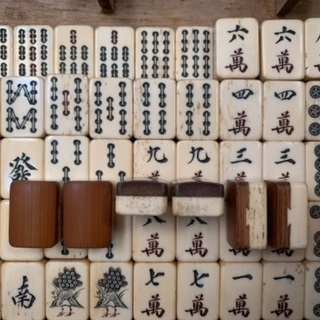 六 六
萬 萬
四 四
萬 萬
發 九 九 三 三
萬 萬 萬 萬
萬 萬
南 七 七 一 一
萬 萬 萬 萬